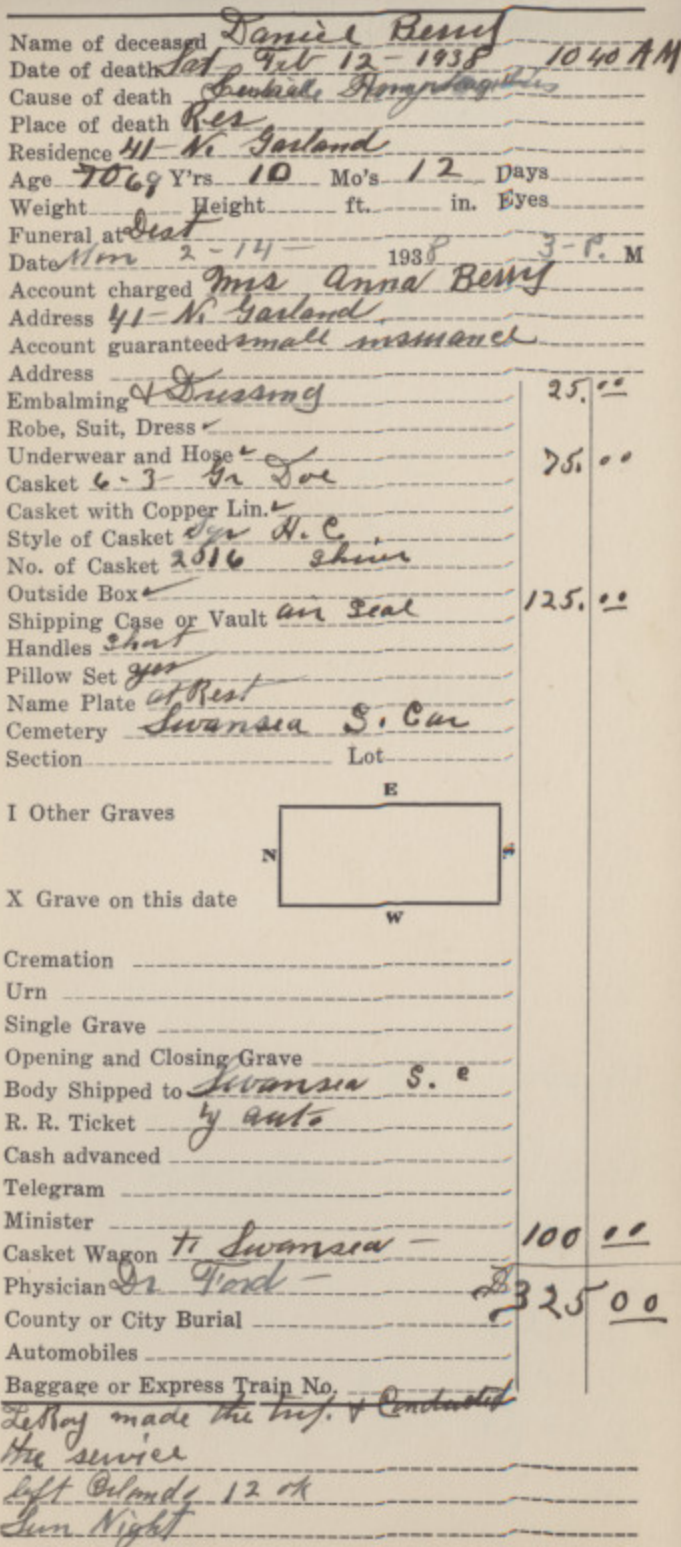 Name of deceased Daniel Berry
Date of death Sat Feb 12 - 1938 10 40 AM
Cause of death
Place of death Res
Residence 41 - N. Garland
Age 70 69 Y'rs. 10 Mo's 12 Days
Weight Height ft. in. Eyes
Funeral at Dest
Date Mon 2 - 14 - 1938 3 - P. M
Account charged Mrs Anna Berry
Address 41 - N. Garland
Account guaranteed small insurance
Address
Embalming & Dressing 25.00
Robe, Suit, Dress ✓
Underwear and Hose ✓ 75.00
Casket 6 - 3 Gr Doe
Casket with Copper Lin. ✓
Style of Casket H. C.
No. of Casket 2016
Outside Box ✓ 125.00
Shipping Case or Vault air seal
Handles Short
Pillow Set yes
Name Plate at Rest
Cemetery Swansea S. Car
Section Lot
E
I Other Graves
N S
X Grave on this date
W
Cremation
Urn
Single Grave
Opening and Closing Grave
Body Shipped to Swansea S. C
R. R. Ticket by auto
Cash advanced
Telegram
Minister
Casket Wagon to Swansea - 100 00
Physician Dr Ford - $325 00
County or City Burial
Automobiles
Baggage or Express Train No.
LeRoy made the trip. & Conducted
the service
left Orlando 12 ok
Sun Night